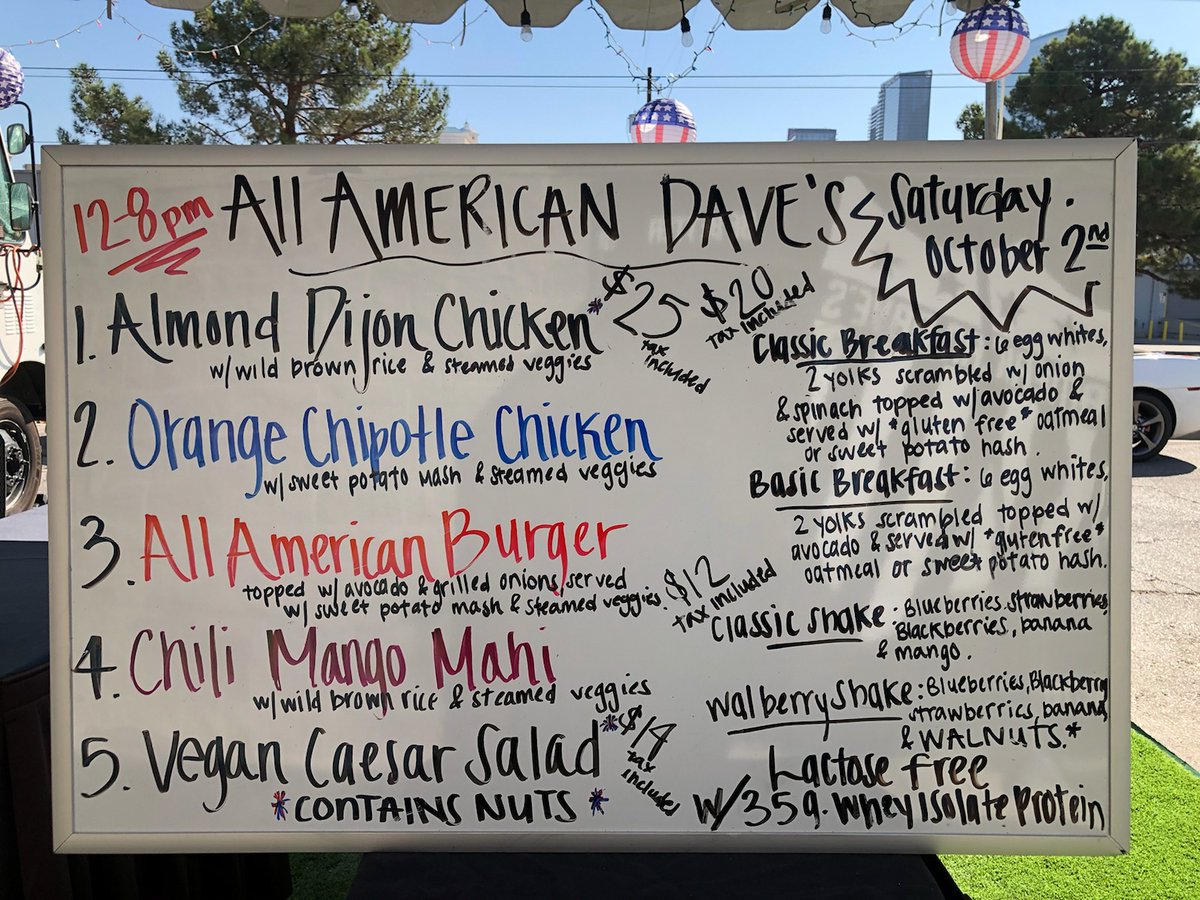 12-8pm All American Dave's Saturday. October 2nd
1. Almond Dijon Chicken* $25 tax included
w/ wild brown rice & steamed veggies
2. Orange Chipotle Chicken
w/ sweet potato mash & steamed veggies
3. All American Burger
topped w/ avocado & grilled onions served
w/ sweet potato mash & steamed veggies.
4. Chili Mango Mahi
w/ wild brown rice & steamed veggies
5. Vegan Caesar Salad* $14 tax included
*CONTAINS NUTS*
$20 tax included
Classic Breakfast: 6 egg whites,
2 yolks scrambled w/ onion
& spinach topped w/ avocado &
served w/ *gluten free* oatmeal
or sweet potato hash.
Basic Breakfast: 6 egg whites,
2 yolks scrambled topped w/
avocado & served w/ *gluten free*
oatmeal or sweet potato hash.
$12 tax included
Classic Shake: Blueberries, strawberries,
Blackberries, banana
& mango.
Walberry Shake: Blueberries, Blackberry
strawberries, banana,
& WALNUTS.*
Lactose free
w/ 35g. Whey Isolate Protein